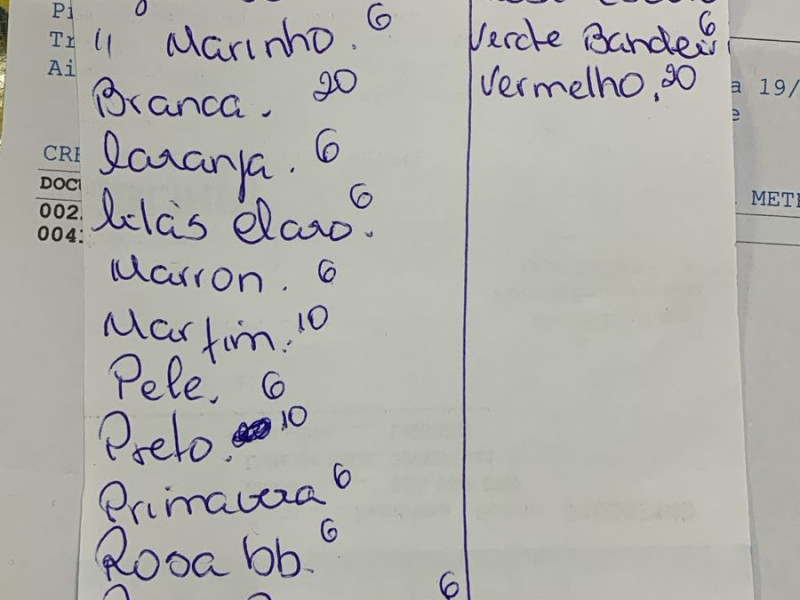 11 Marinho. 6
Branca. 20
laranja. 6
lilás claro. 6
Marron. 6
Marfim. 10
Pele. 6
Preto. 10
Primavera 6
Rosa bb. 6
6
Verde Bandeir 6
Vermelho. 20
Pi
Tr
Ai
CRE
DOCU
002.
004:
a 19/
e
METR